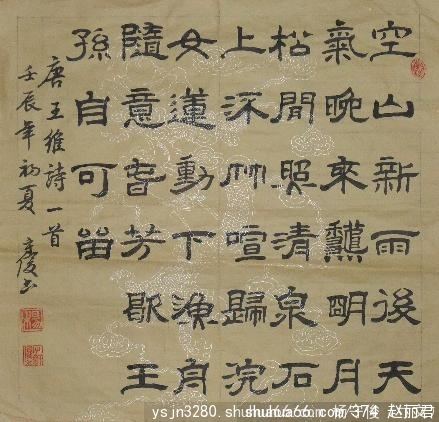 空山新雨後天
氣晚來龝明月
松間照清泉石
上流竹喧歸浣
女蓮動下漁舟
隨意春芳歇王
孫自可留
唐王維詩一首
壬辰年初夏
ysjn3280. 赵丽君